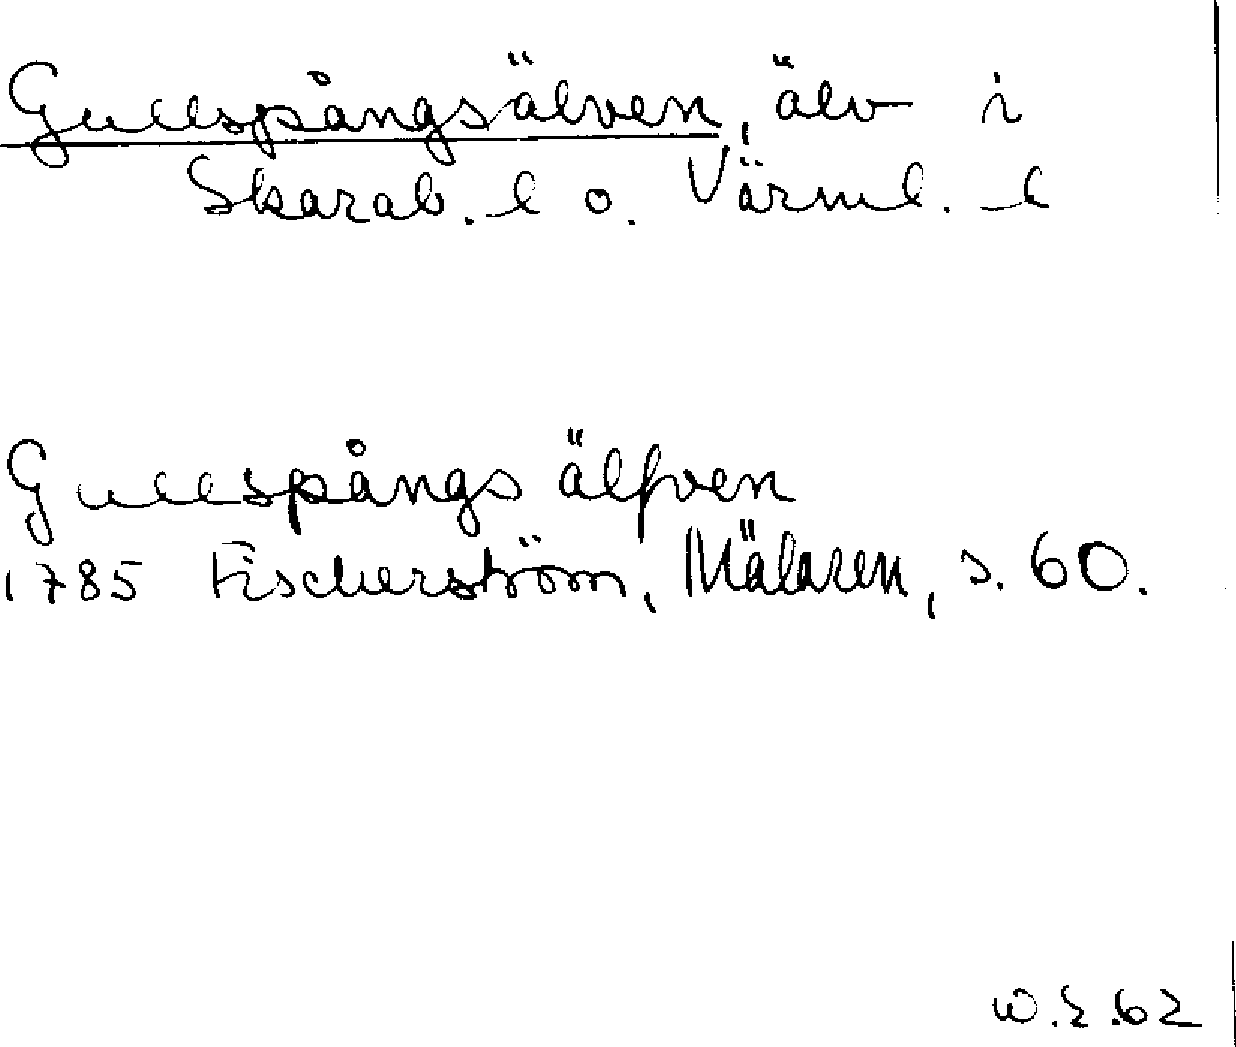 Gullspångsälven, älv i
Skarab. l o. Värml. l
Gullspångs älfven
1785 Fischerström, Mälaren, s. 60.
W.Z.62